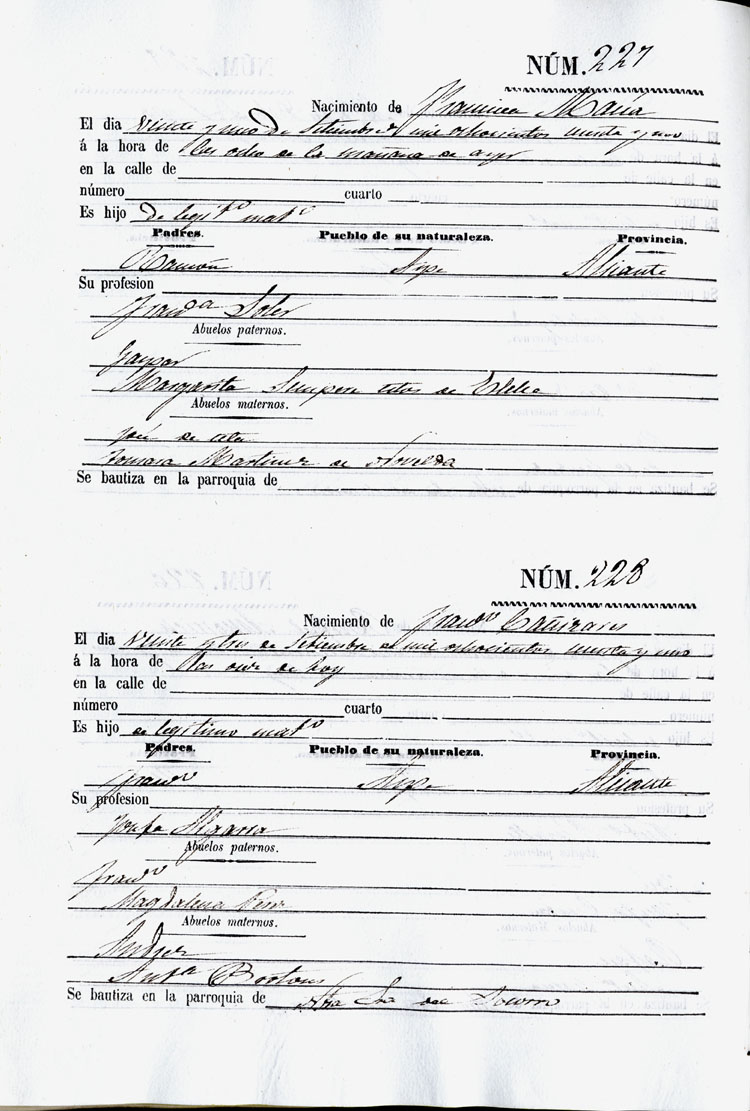 NÚM. 227
Nacimiento de Francisca Maria
El dia veinte y uno de Setiembre de mil ochocientos sesenta y uno
á la hora de las ocho de la mañana de ayer
en la calle de
número cuarto
Es hijo de legit.º mat.º
Padres. Pueblo de su naturaleza. Provincia.
Ramón Aspe Alicante
Su profesion
Fran.ca Soler
Abuelos paternos.
Gaspar
Margarita Sempere de Elche
Abuelos maternos.
José de
Tomasa Martinez de Novelda
Se bautiza en la parroquia de
NÚM. 228
Nacimiento de Fran.co Cañizares
El dia veinte y tres de Setiembre de mil ochocientos sesenta y uno
á la hora de las de hoy
en la calle de
número cuarto
Es hijo de legitimo mat.º
Padres. Pueblo de su naturaleza. Provincia.
Fran.co Aspe Alicante
Su profesion
Josefa
Abuelos paternos.
Fran.co
Magdalena
Abuelos maternos.
Ant.a
Se bautiza en la parroquia de Ntra Sra del Socorro